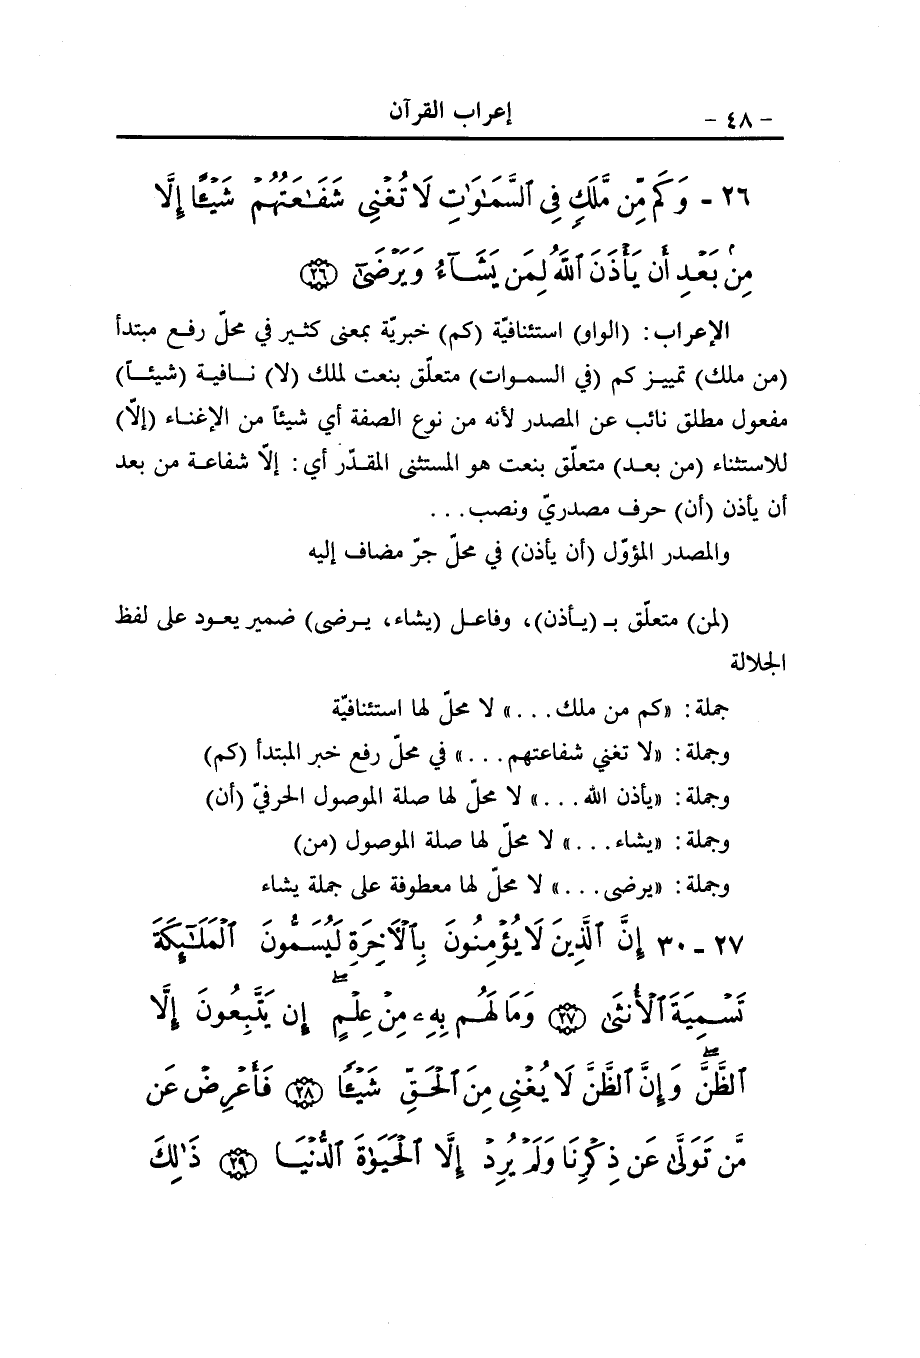 - ٤٨ -
إعراب القرآن
٢٦ - وَكَم مِّن مَّلَكٍ فِي ٱلسَّمَٰوَٰتِ لَا تُغْنِي شَفَٰعَتُهُمْ شَيْـًٔا إِلَّا
مِنۢ بَعْدِ أَن يَأْذَنَ ٱللَّهُ لِمَن يَشَآءُ وَيَرْضَىٰٓ ﴿٢٦﴾
الإعراب: (الواو) استئنافيّة (كم) خبريّة بمعنى كثير في محلّ رفع مبتدأ
(من ملك) تمييز كم (في السموات) متعلّق بنعت لملك (لا) نافية (شيئاً)
مفعول مطلق نائب عن المصدر لأنه من نوع الصفة أي شيئاً من الإغناء (إلّا)
للاستثناء (من بعد) متعلّق بنعت هو المستثنى المقدّر أي: إلّا شفاعة من بعد
أن يأذن (أن) حرف مصدريّ ونصب...
والمصدر المؤوّل (أن يأذن) في محلّ جرّ مضاف إليه
(لمن) متعلّق بـ (يأذن)، وفاعل (يشاء، يرضى) ضمير يعود على لفظ
الجلالة
جملة: «كم من ملك...» لا محلّ لها استئنافيّة
وجملة: «لا تغني شفاعتهم...» في محلّ رفع خبر المبتدأ (كم)
وجملة: «يأذن الله...» لا محلّ لها صلة الموصول الحرفيّ (أن)
وجملة: «يشاء...» لا محلّ لها صلة الموصول (من)
وجملة: «يرضى...» لا محلّ لها معطوفة على جملة يشاء
٢٧ - ٣٠ إِنَّ ٱلَّذِينَ لَا يُؤْمِنُونَ بِٱلْأَخِرَةِ لَيُسَمُّونَ ٱلْمَلَٰٓئِكَةَ
تَسْمِيَةَ ٱلْأُنثَىٰ ﴿٢٧﴾ وَمَا لَهُم بِهِۦ مِنْ عِلْمٍ ۖ إِن يَتَّبِعُونَ إِلَّا
ٱلظَّنَّ ۖ وَإِنَّ ٱلظَّنَّ لَا يُغْنِي مِنَ ٱلْحَقِّ شَيْـًٔا ﴿٢٨﴾ فَأَعْرِضْ عَن
مَّن تَوَلَّىٰ عَن ذِكْرِنَا وَلَمْ يُرِدْ إِلَّا ٱلْحَيَوٰةَ ٱلدُّنْيَا ﴿٢٩﴾ ذَٰلِكَ